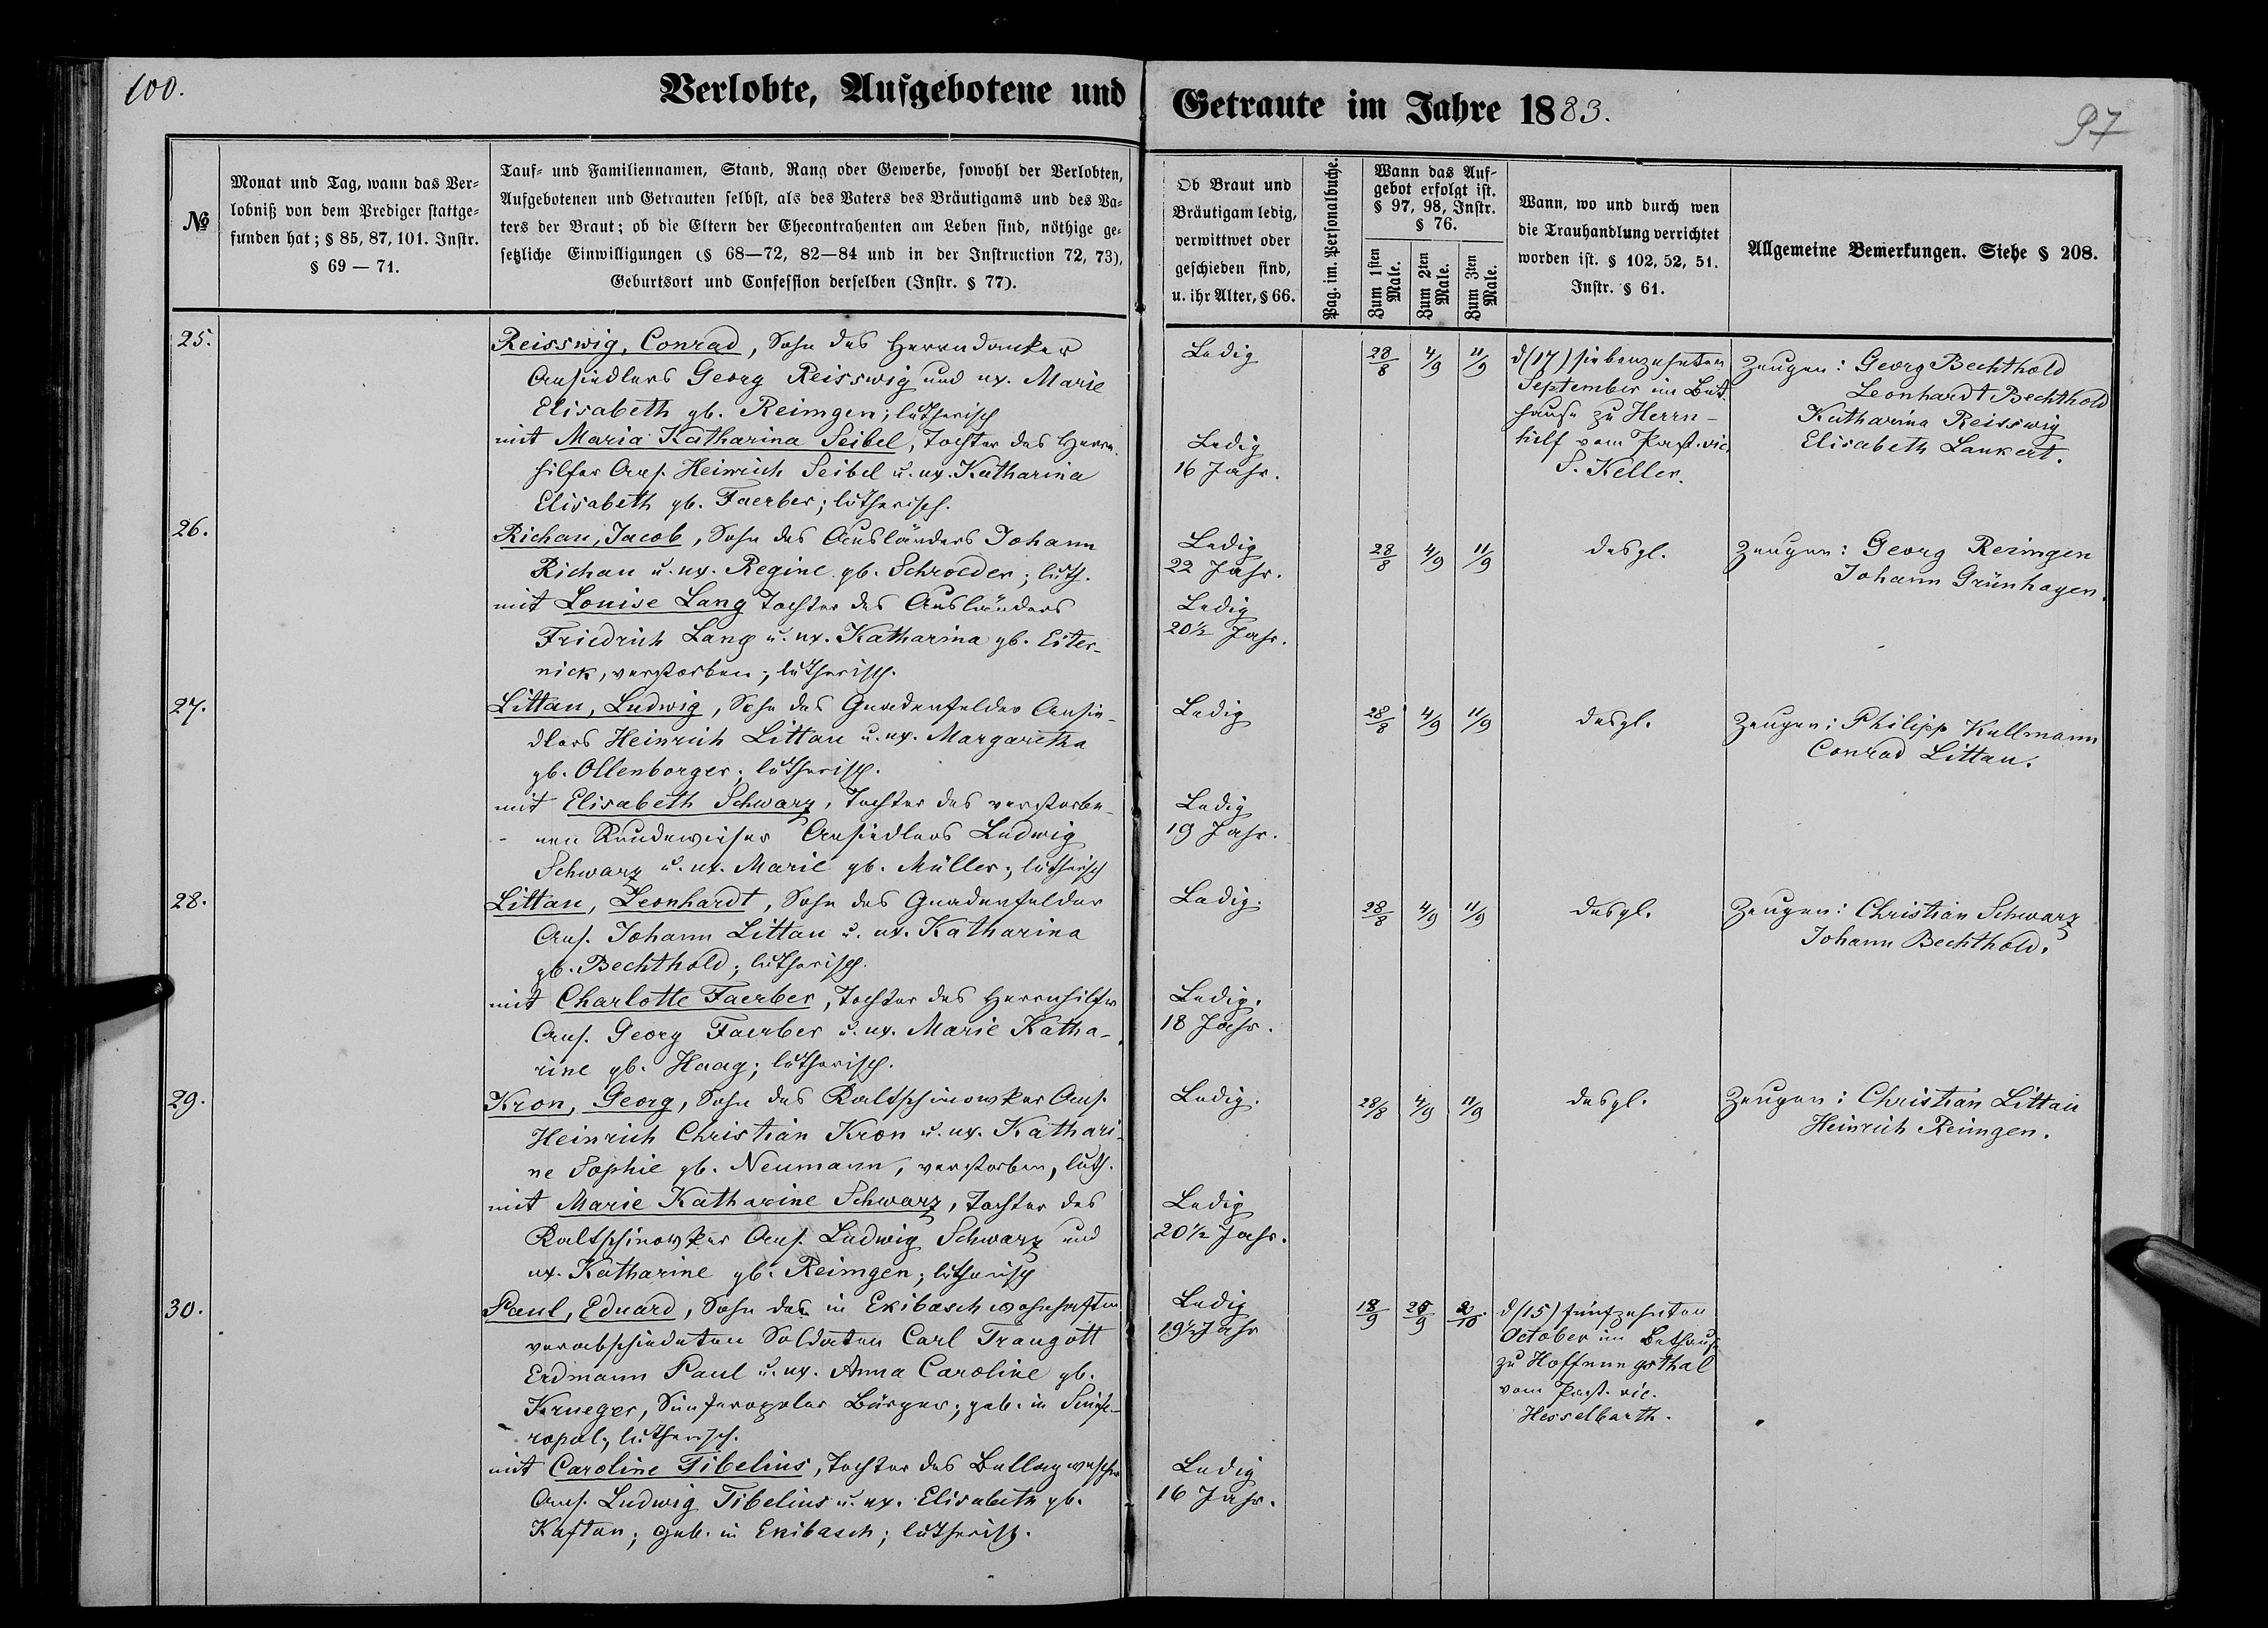 100.
Verlobte, Aufgebotene und
Getraute im Jahre 1883.
97
№
Monat und Tag, wann das Ver=
lobniß von dem Prediger stattge=
funden hat; § 85, 87, 101. Instr.
§ 69 — 71.
Tauf= und Familiennamen, Stand, Rang oder Gewerbe, sowohl der Verlobten,
Aufgebotenen und Getrauten selbst, als des Vaters des Bräutigams und des Va=
ters der Braut; ob die Eltern der Ehecontrahenten am Leben sind, nöthige ge=
setzliche Einwilligungen (§ 68—72, 82—84 und in der Instruction 72, 73),
Geburtsort und Confession derselben (Instr. § 77).
Ob Braut und
Bräutigam ledig,
verwittwet oder
geschieden sind,
u. ihr Alter, § 66.
Pag. im. Personalbuche.
Wann das Auf=
gebot erfolgt ist.
§ 97, 98, Instr.
§ 76.
Zum 1sten
Male.
Zum 2ten
Male.
Zum 3ten
Male.
Wann, wo und durch wen
die Trauhandlung verrichtet
worden ist. § 102, 52, 51.
Instr. § 61.
Allgemeine Bemerkungen. Siehe § 208.
25.
Reisswig, Conrad, Sohn des
Ansiedlers Georg Reisswig und ux. Marie
Elisabeth gb. Reimgen; lutherisch
mit Maria Katharina Seibel, Tochter des Herrn-
hilfer Ans. Heinrich Seibel u. ux. Katharina
Elisabeth gb. Faerber; lutherisch.
Ledig
Ledig
16 Jahr.
28/8 4/9 11/9
d (17) siebenzehnten
September im Bet-
hause zu Herrn-
hilf vom Past. vic.
S. Keller.
Zeugen: Georg Bechthold
Leonhardt Bechthold
Katharina Reisswig
Elisabeth Lankert.
26.
Richau, Jacob, Sohn des Ausländers Johann
Richau u. ux. Regine gb. Schroeder; luth.
mit Louise Lang Tochter des Ausländers
Friedrich Lang u. ux. Katharina gb. Eiter-
nick, verstorben; lutherisch.
Ledig
22 Jahr.
Ledig
20½ Jahr.
28/8 4/9 11/9
desgl.
Zeugen: Georg Reimgen
Johann Grünhagen.
27.
Littau, Ludwig, Sohn des Gnadenfelder Ansie-
dlers Heinrich Littau u. ux. Margaretha
gb. Ollenborger; lutherisch.
mit Elisabeth Schwarz, Tochter des verstorbe-
nen Rundewieser Ansiedlers Ludwig
Schwarz u. ux. Marie gb. Müller; lutherisch
Ledig
Ledig
19 Jahr.
28/8 4/9 11/9
desgl.
Zeugen: Philipp Kullmann
Conrad Littau.
28.
Littau, Leonhardt, Sohn des Gnadenfelder
Ans. Johann Littau u. ux. Katharina
gb. Bechthold; lutherisch.
mit Charlotte Faerber, Tochter des Herrnhilfer
Ans. Georg Faerber u. ux. Marie Katha-
rine gb. Haag; lutherisch.
Ledig.
Ledig.
18 Jahr.
28/8 4/9 11/9
desgl.
Zeugen: Christian Schwarz
Johann Bechthold.
29.
Kron, Georg, Sohn des Kaltschinowker Ans.
Heinrich Christian Kron u. ux. Kathari-
ne Sophie gb. Neumann, verstorben, luth.
mit Marie Katharine Schwarz, Tochter des
Kaltschinowker Ans. Ludwig Schwarz und
ux. Katharine gb. Reimgen; lutherisch
Ledig.
Ledig
20½ Jahr.
28/8 4/9 11/9
desgl.
Zeugen: Christian Littau
Heinrich Reimgen.
30.
Paul, Eduard, Sohn des in Ekibasch wohnhaften
verabschiedeten Soldaten Carl Traugott
Erdmann Paul u. ux. Anna Caroline gb.
Krueger, Simferopoler Bürger; geb. in Simfe-
ropol; lutherisch.
mit Caroline Tibelius, Tochter des
Ans. Ludwig Tibelius u. ux. Elisabeth gb.
Kaftan; geb. in Ekibasch; lutherisch.
Ledig
19½ Jahr
Ledig
16 Jahr.
18/9 25/9 2/10
d (15) fünfzehnten
October im Bethause
zu Hoffnungsthal
vom Past. vic.
Hesselbarth.